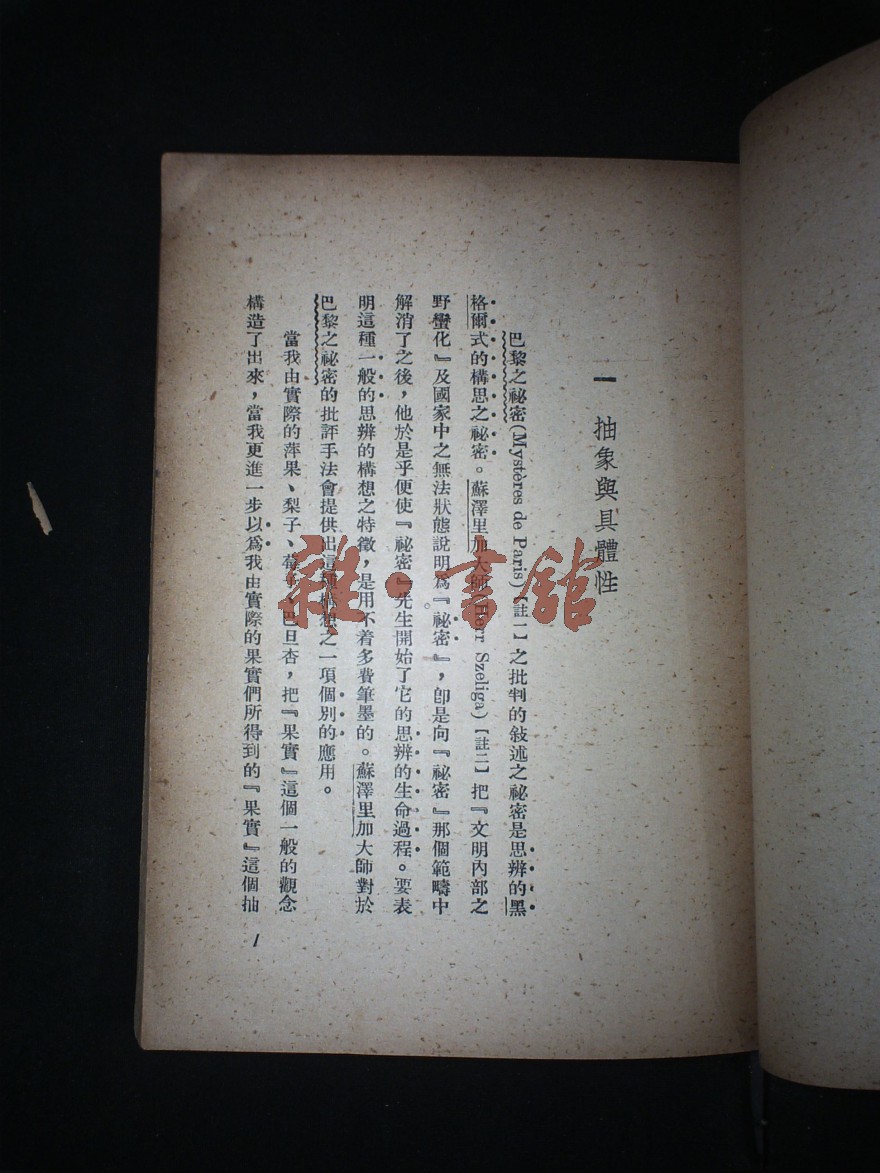 一　抽象與具體性
巴黎之祕密(Mystères de Paris)【註一】之批判的敍述之祕密是思辨的黑
格爾式的構思之祕密。蘇澤里加大師(Herr Szeliga)【註二】把『文明內部之
野蠻化』及國家中之無法狀態說明爲『祕密』，卽是向『祕密』那個範疇中
解消了之後，他於是乎便使『祕密』先生開始了它的思辨的生命過程。要表
明這種一般的思辨的構想之特徵，是用不着多費筆墨的。蘇澤里加大師對於
巴黎之祕密的批評手法會提供出這種構想之一項個別的應用。
當我由實際的苹果、梨子、莓子、巴旦杏，把『果實』這個一般的觀念
構造了出來，當我更進一步以爲我由實際的果實們所得到的『果實』這個抽
1
雜·書館